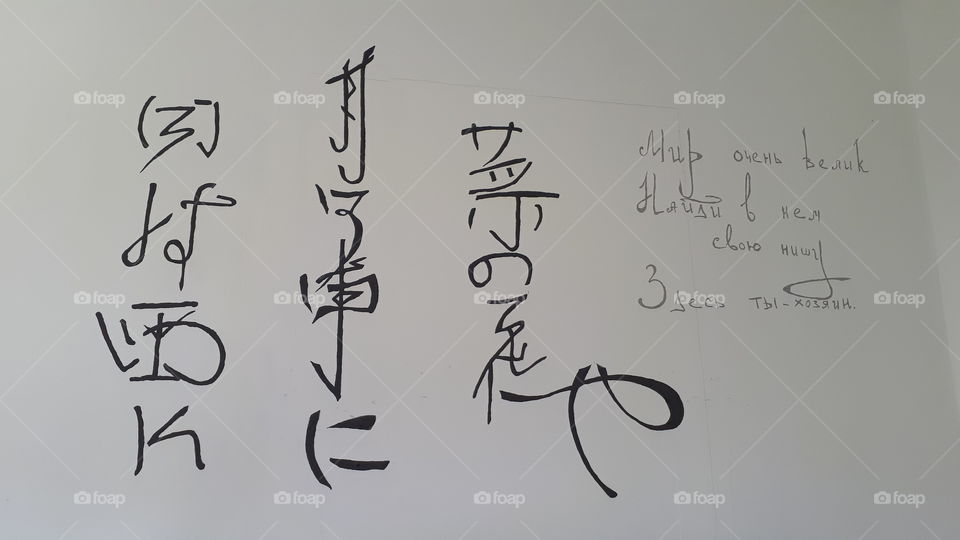 菜の花や
月は東に
日は西に
Мир очень велик
Найди в нем
свою нишу
Здесь ты-хозяин.
foap foap foap foap foap
foap foap foap foap foap
foap foap foap foap foap